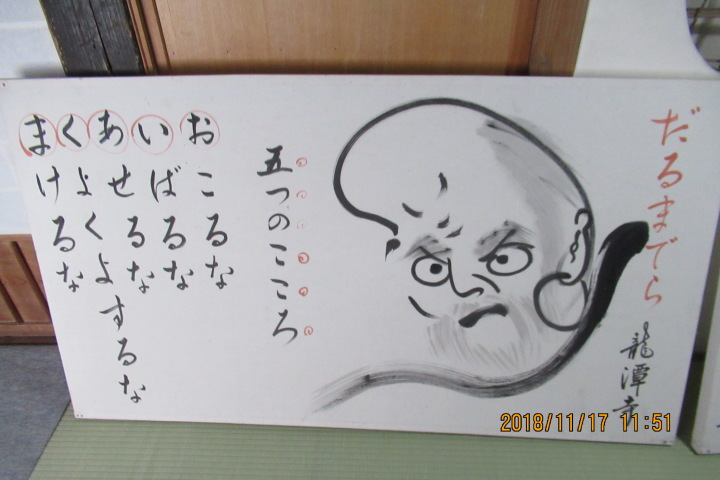 だるまでら
龍潭寺
五つのこころ
おこるな
いばるな
あせるな
くよくよするな
まけるな
2018/11/17 11:51